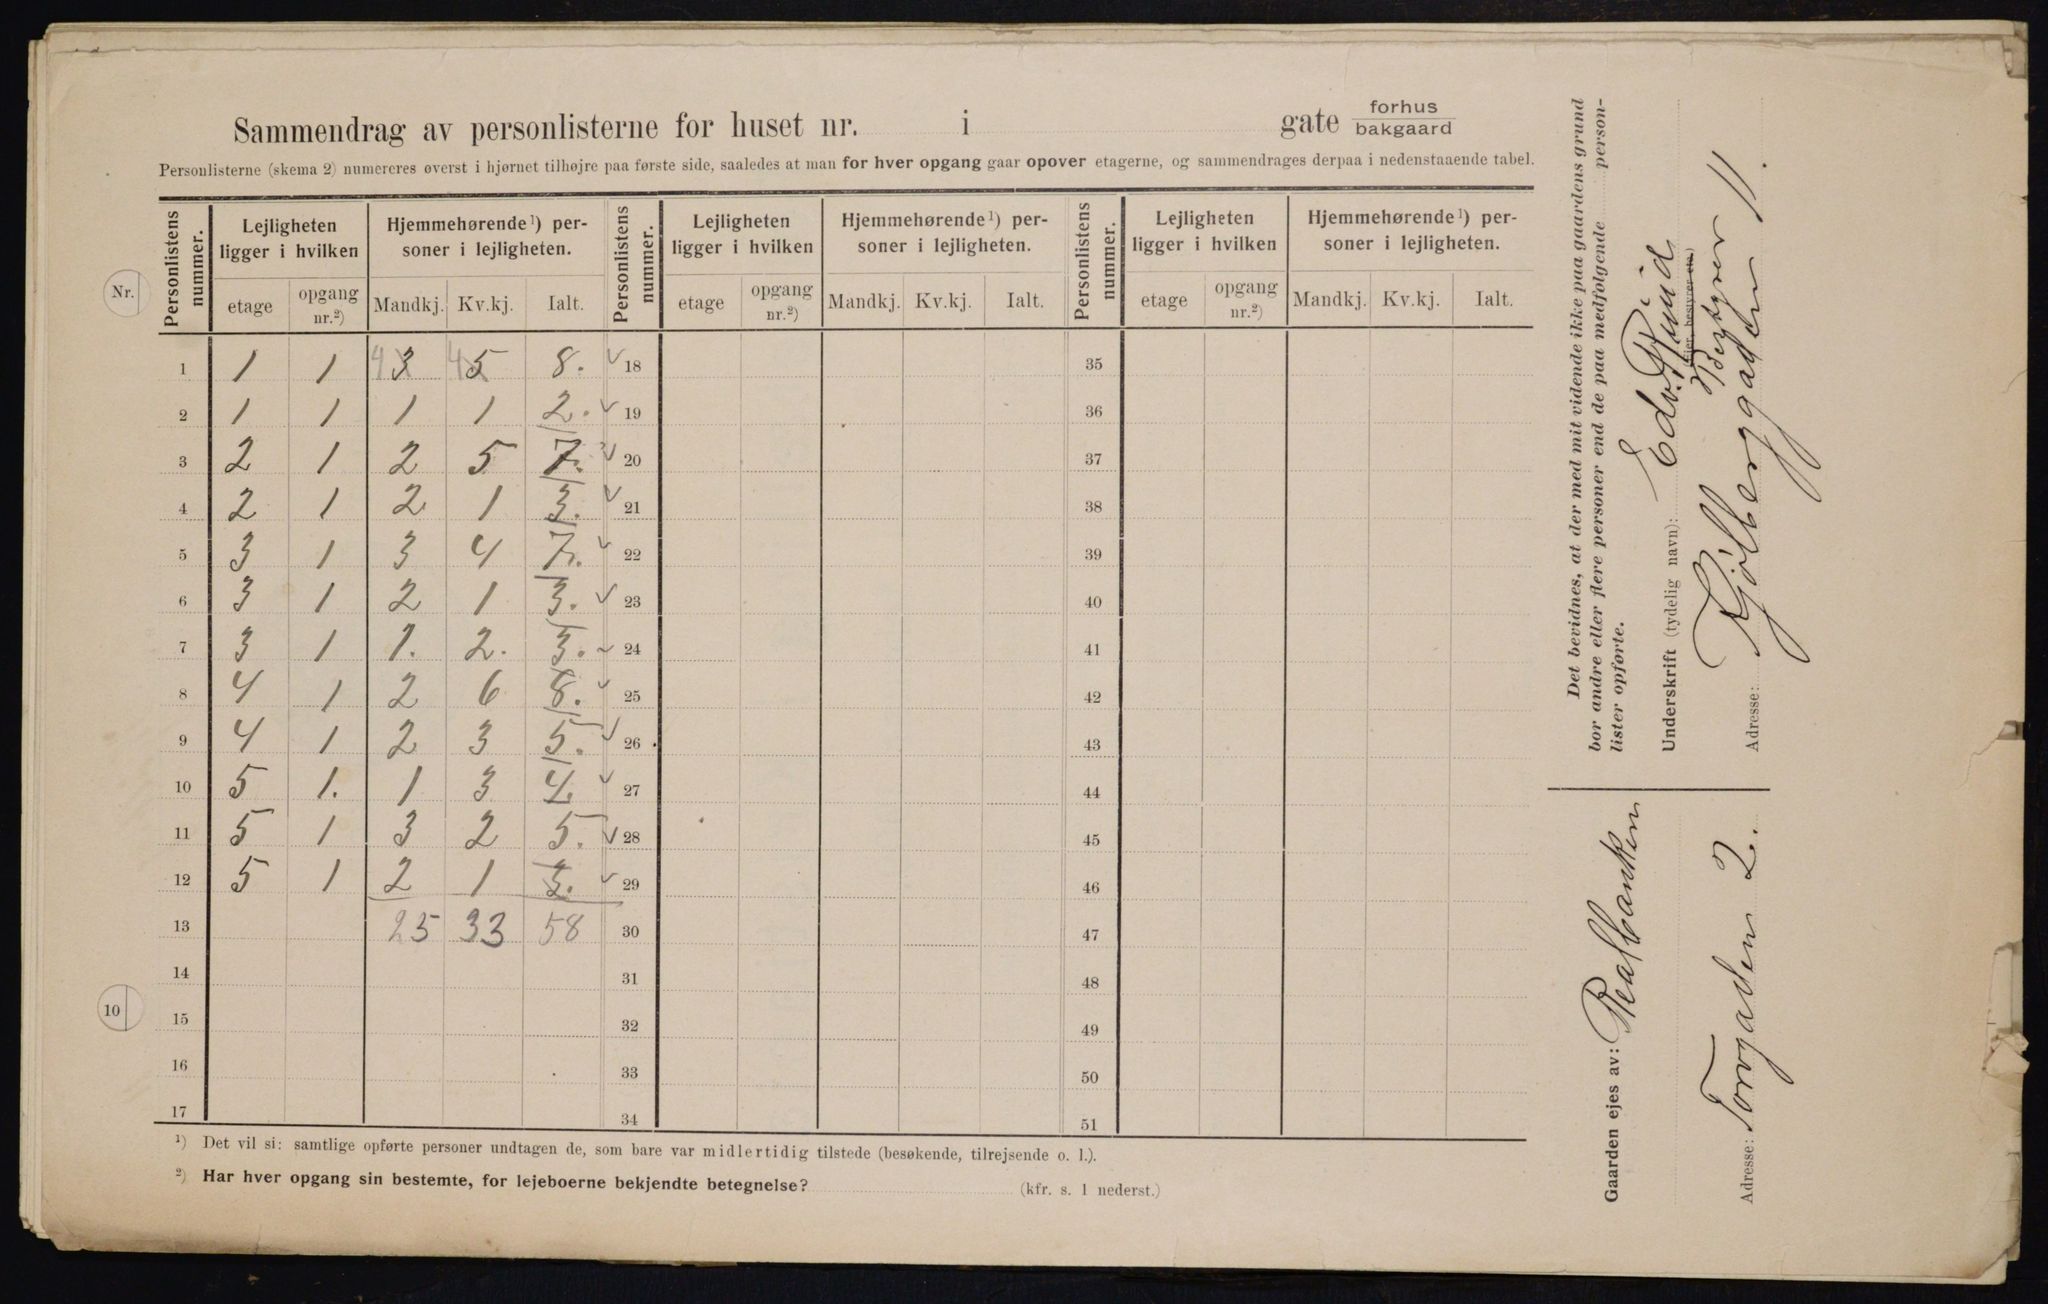 Sammendrag av personlisterne for huset nr. i gate forhus
bakgaard
Personlisterne (skema 2) numereres øverst i hjørnet tilhøjre paa første side, saaledes at man for hver opgang gaar opover etagerne, og sammendrages derpaa i nedenstaaende tabel.
Personlistens nummer. Lejligheten ligger i hvilken Hjemmehørende¹) personer i lejligheten. Personlistens nummer. Lejligheten ligger i hvilken Hjemmehørende¹) personer i lejligheten. Personlistens nummer. Lejligheten ligger i hvilken Hjemmehørende¹) personer i lejligheten.
Nr.
etage opgang nr.²) Mandkj. Kv.kj. Ialt. etage opgang nr.²) Mandkj. Kv.kj. Ialt. etage opgang nr.²) Mandkj. Kv.kj. Ialt.
1 1 1 4 3 4 5 8. 18 35
2 1 1 1 1 2. 19 36
3 2 1 2 5 7. 20 37
4 2 1 2 1 3. 21 38
5 3 1 3 4 7. 22 39
6 3 1 2 1 3. 23 40
7 3 1 1. 2. 3. 24 41
8 4 1 2 6 8. 25 42
9 4 1 2 3 5. 26 43
10 5 1. 1 3 4. 27 44
11 5 1 3 2 5. 28 45
12 5 1 2 1 3. 29 46
13 25 33 58 30 47
14 31 48
10
15 32 49
16 33 50
17 34 51
¹) Det vil si: samtlige opførte personer undtagen de, som bare var midlertidig tilstede (besøkende, tilrejsende o. l.).
²) Har hver opgang sin bestemte, for lejeboerne bekjendte betegnelse? (kfr. s. 1 nederst.)
Det bevidnes, at der med mit vidende ikke paa gaardens grund
bor andre eller flere personer end de paa medfølgende person-
lister opførte.
Underskrift (tydelig navn): Edv.
(Ejer, bestyrer etc.)
Bestyrer
Adresse: Kjølberggaden 11.
Gaarden ejes av: Realbanken
Adresse: Torvgaden 2.